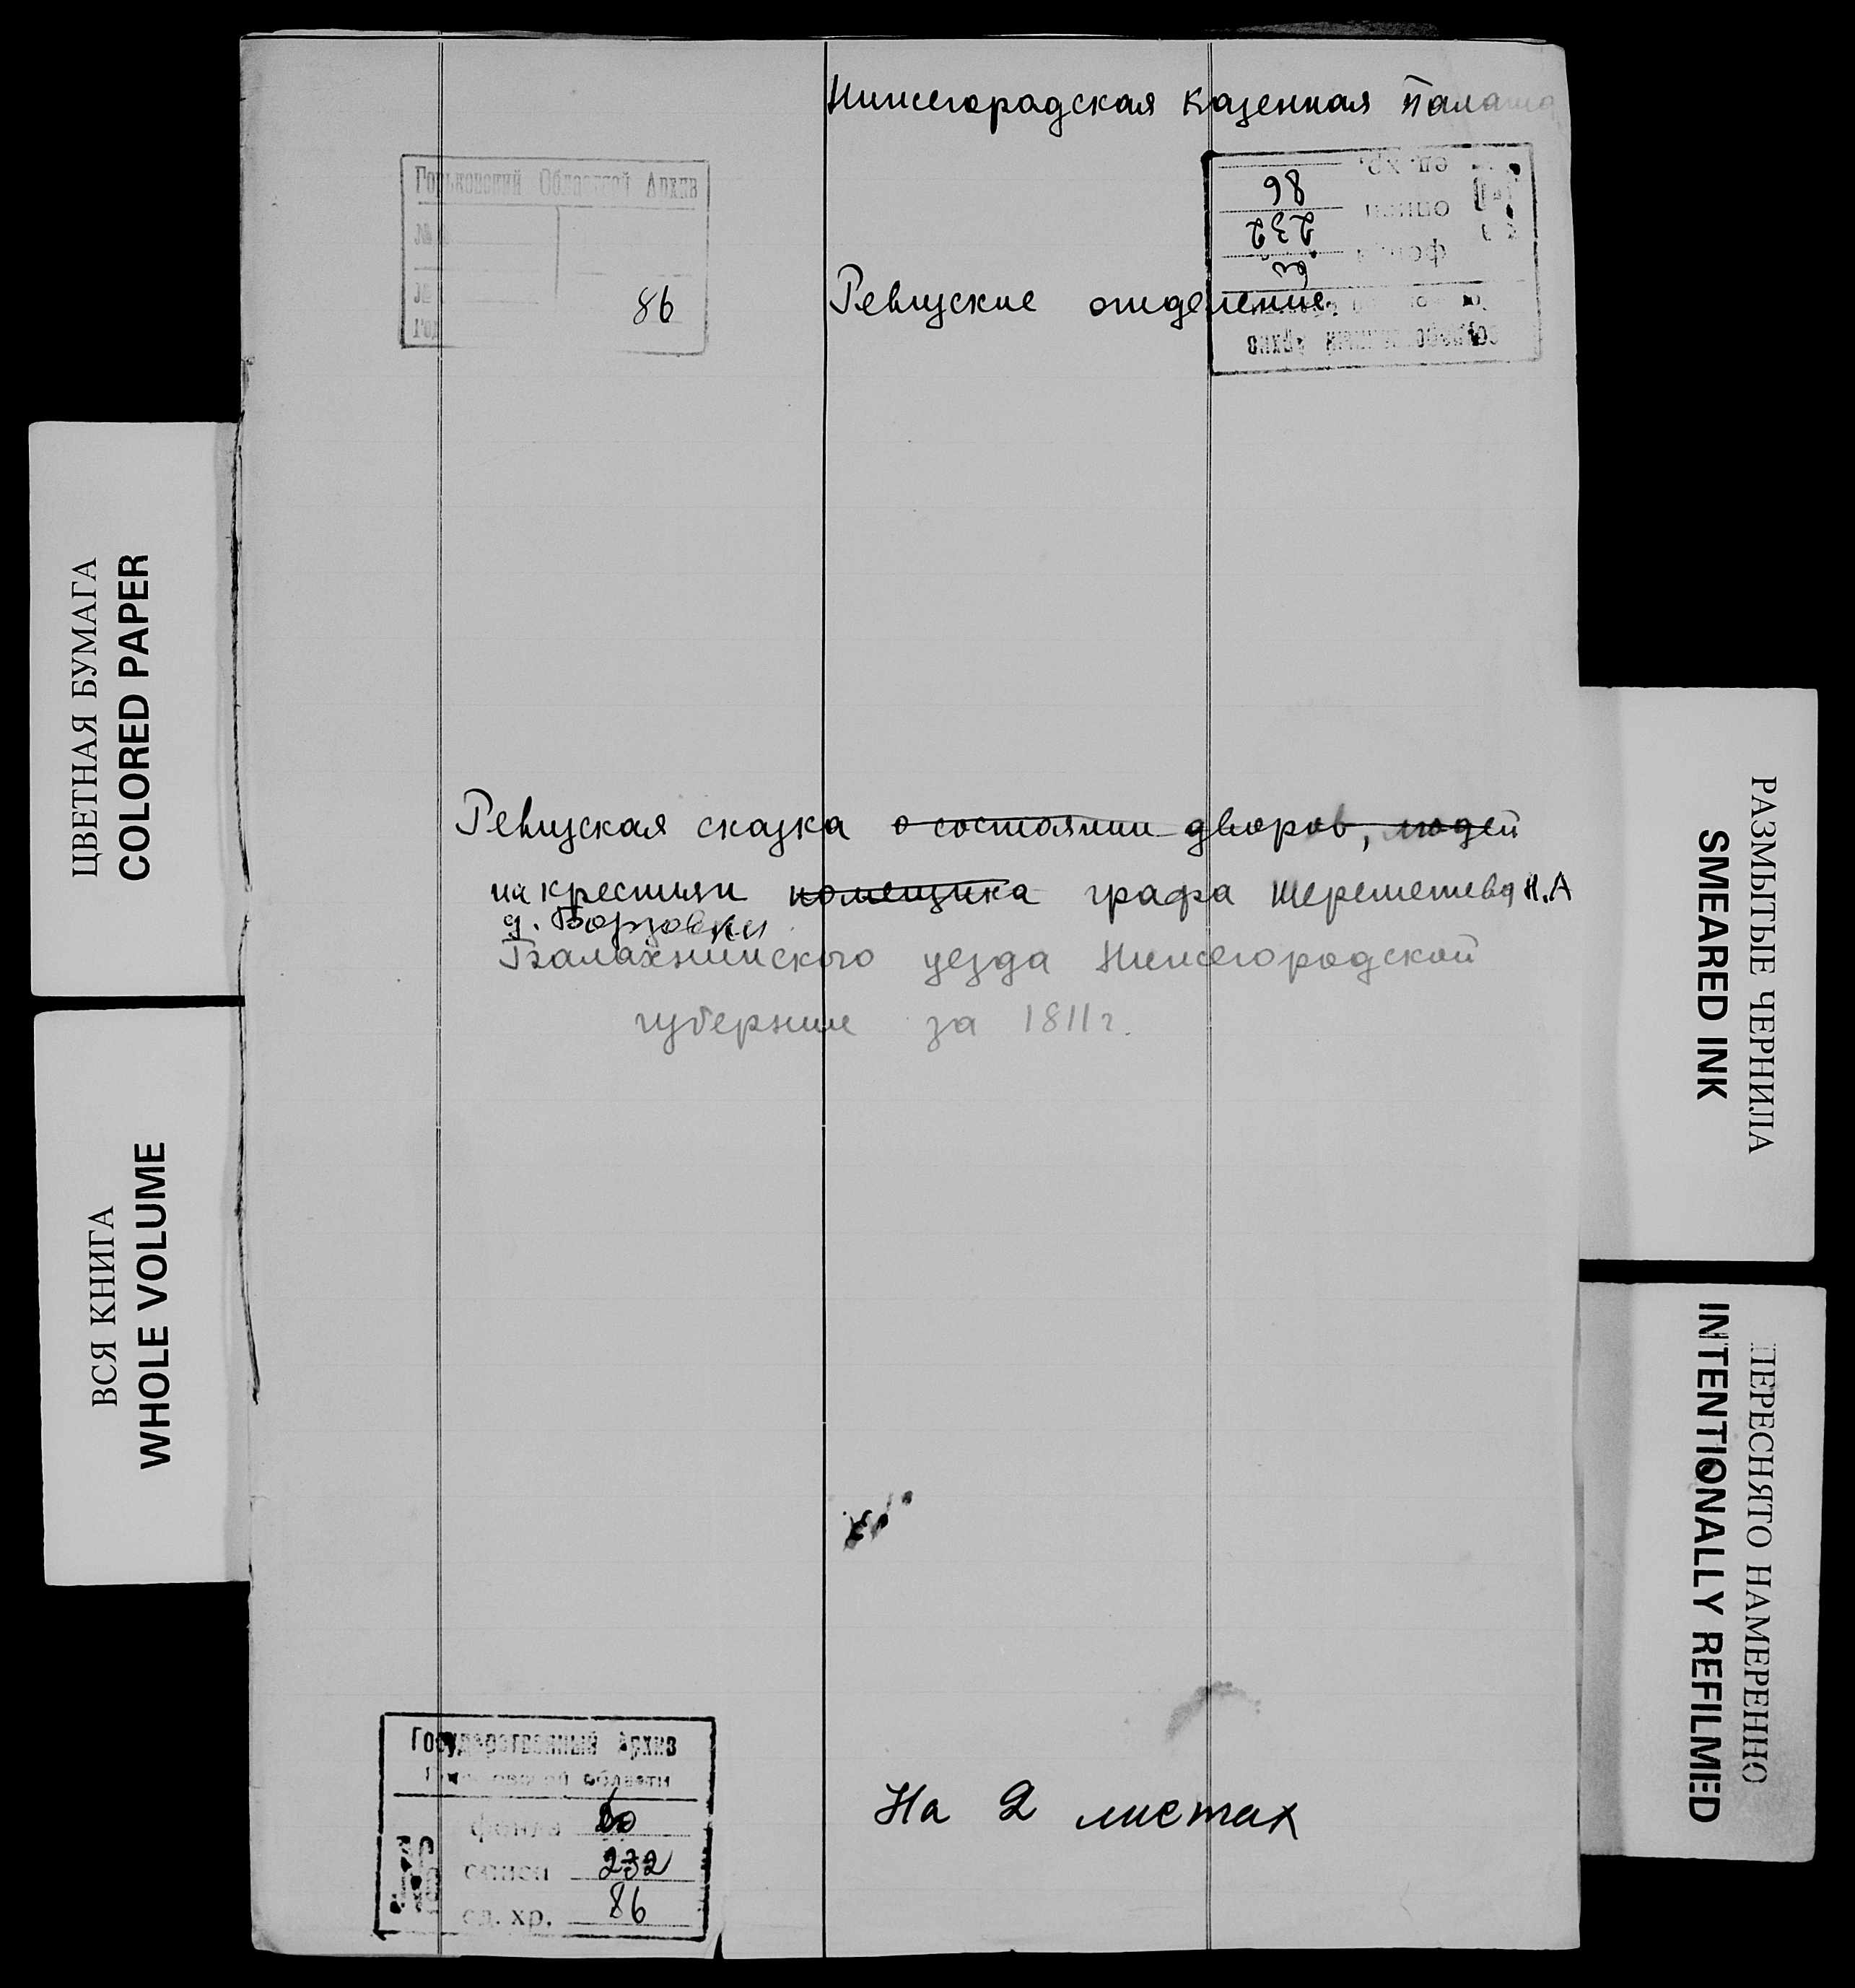 Нижегородская казенная палата
Горьковский Областной Архив
№
№
год
86
ед. хр. 86
описи 232
фонд 60
Ревизские отделение
Ревизская сказка о состоянии дворов, людей
на крестьян помещика графа Шереметева Н.А
д. Борзовки
Балахнинского уезда Нижегородской
губернии за 1811 г.
Государственный Архив
области
№№
фонда 60
описи 232
ед. хр. 86
На 2 листах
ЦВЕТНАЯ БУМАГА
COLORED PAPER
ВСЯ КНИГА
WHOLE VOLUME
РАЗМЫТЫЕ ЧЕРНИЛА
SMEARED INK
ПЕРЕСНЯТО НАМЕРЕННО
INTENTIONALLY REFILMED